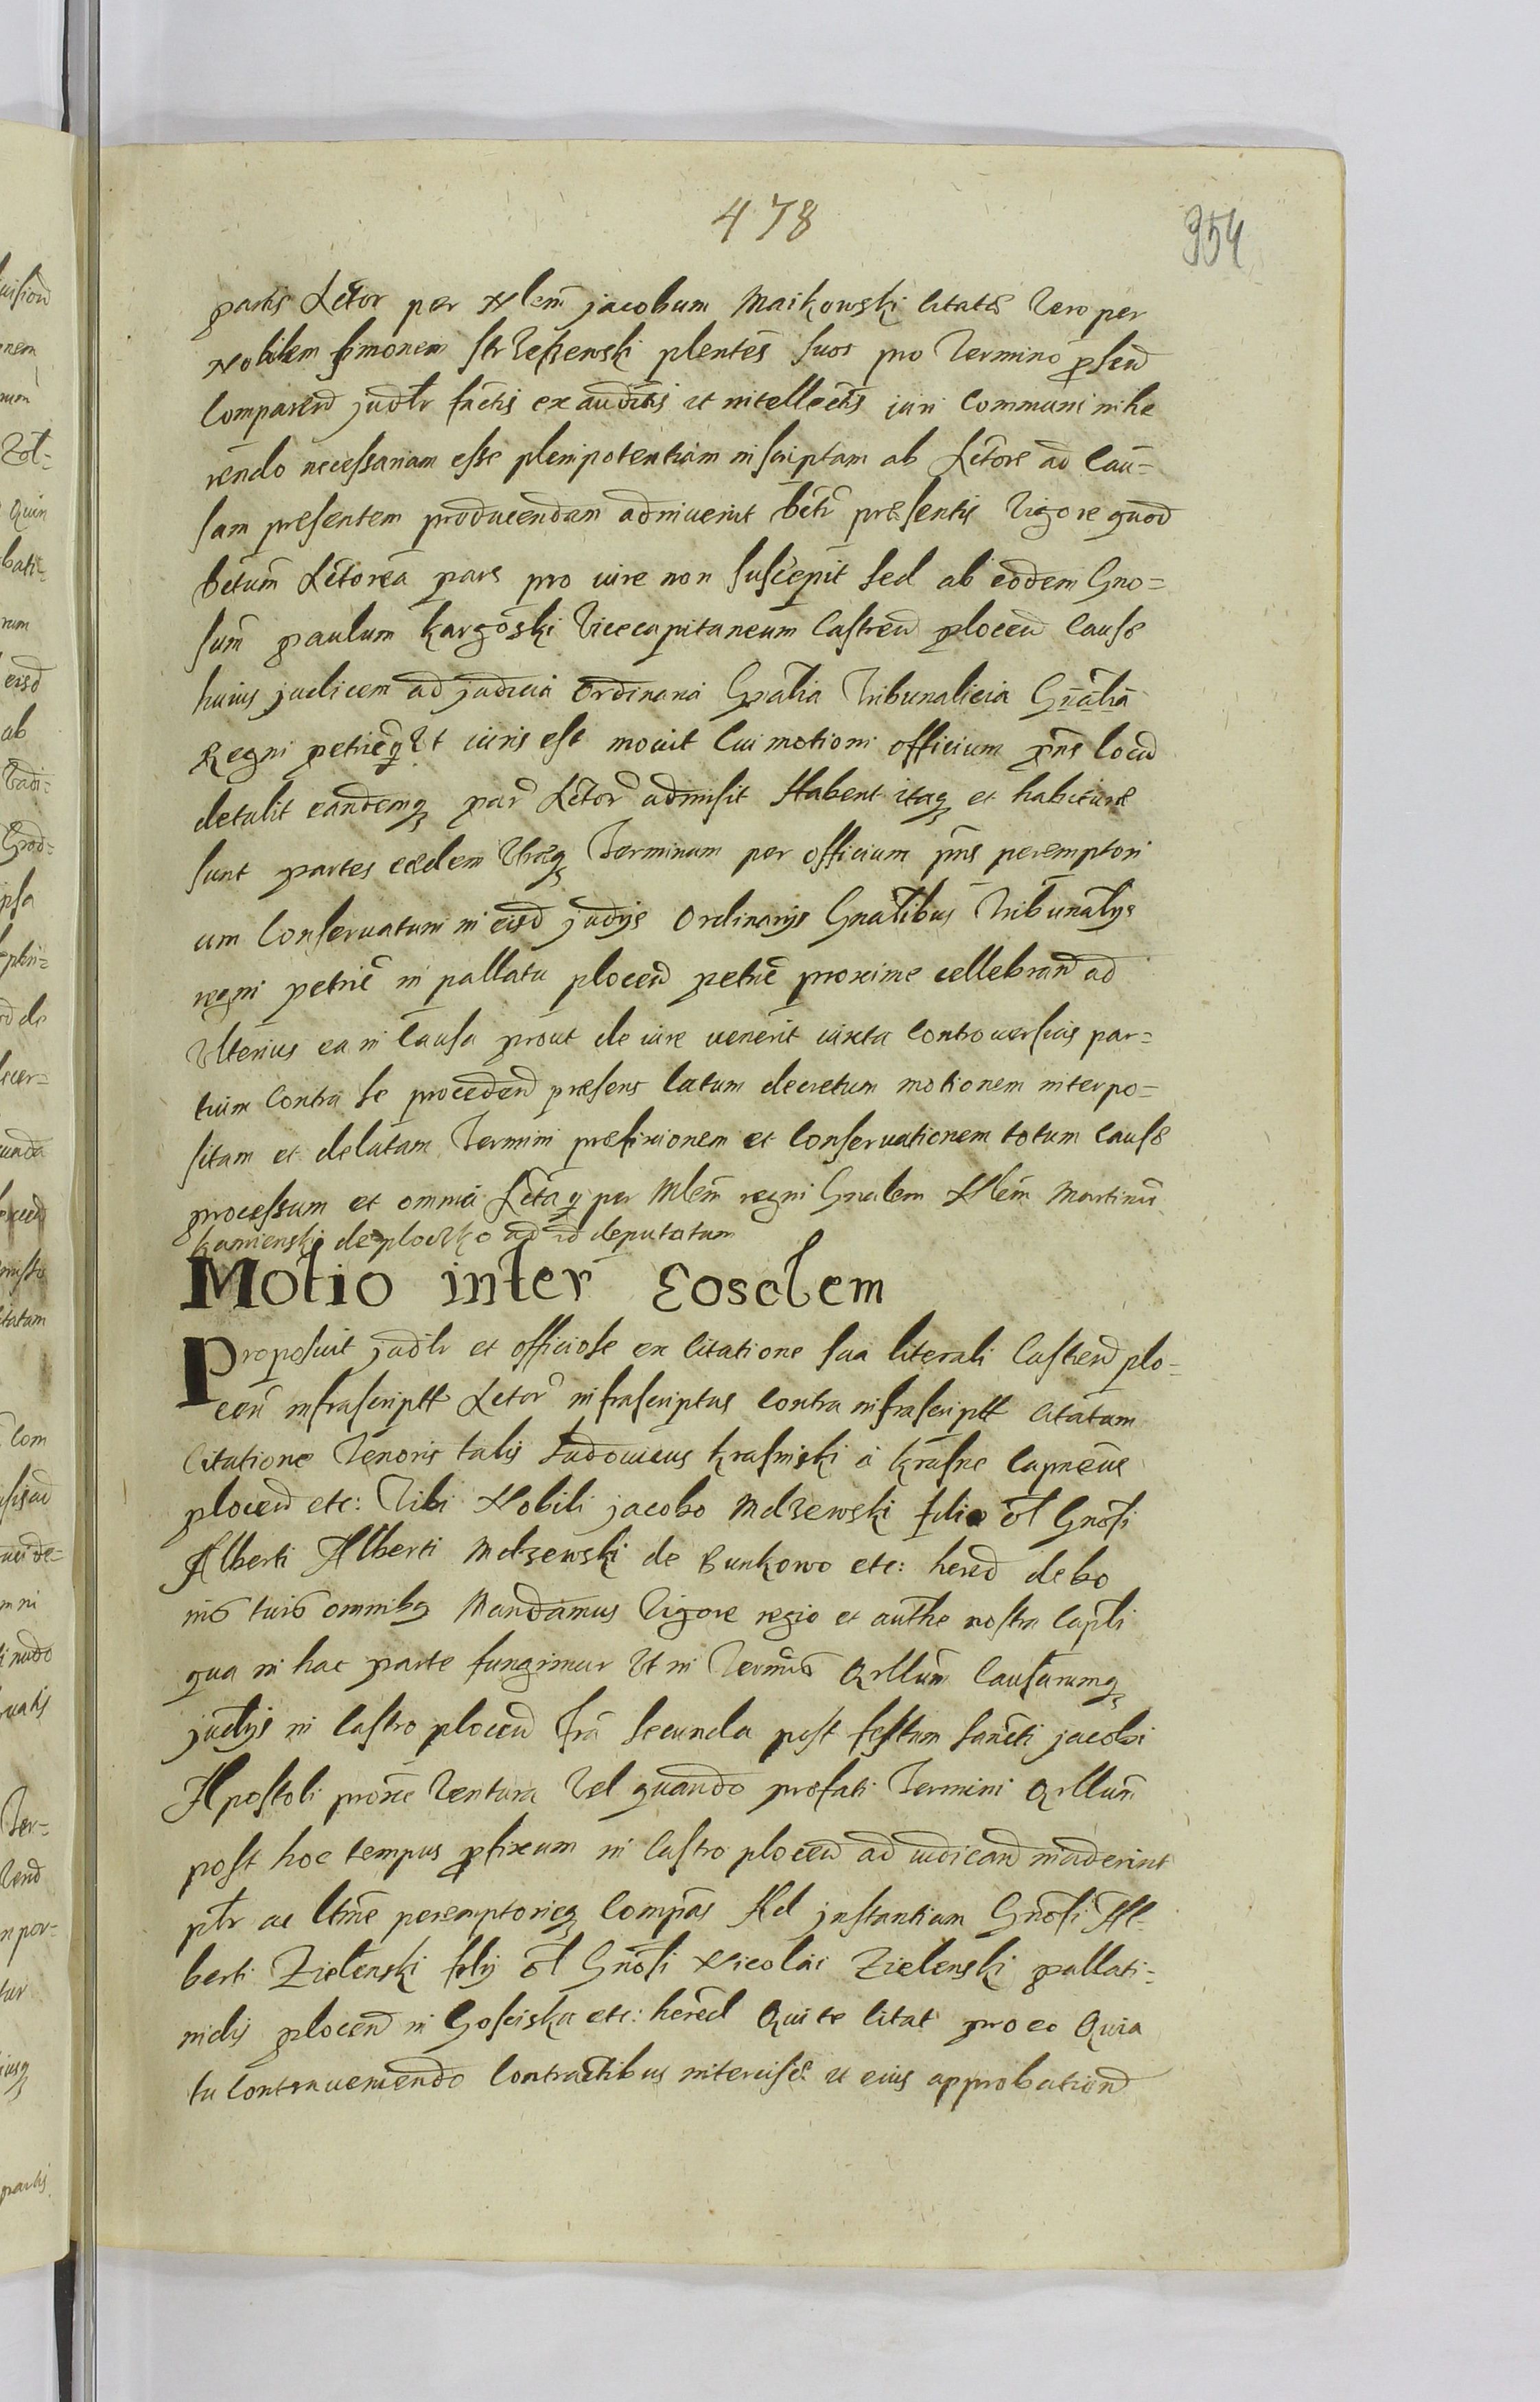 478
954
partis Actor per Nlem Jacobum Maikowski Citatae Vero per
Nobilem Simonem Strzeszewski plentes suos pro Termino psen
Comparen judlr factis ex auditis et intellectis iuri Communi inhe
rendo necessariam esse plenipotentiam inscriptam ab Actore ad Cau=
sam presentem producendam adinuenit Dcti presentis Vigore quod
Dctum Actorea pars pro iure non suscepit sed ab eodem Gno=
sum paulum Kargoski Vicecapitaneum Castren plocen Causae
huius judicem ad judicia Ordinaria Gnalia Tribunalicia Gnalia
Regni petricq Vt iuris est mouit Cui motioni officium pns locum
detulit eandemq par Actor admisit Habent itaq et habiturae
sunt partes eaedem Vtraeq Terminum per officium pns peremptori
um Conseruatum in eisd judijs Ordinarijs Gnalibus Tribunalijs
regni petric in pallatu plocen petric proxime cellebran ad
Vlterius ea in Causa prout de iure uenerit iuxta Controuersias par=
tium Contra se proceden presens latum decretum motionem interpo=
sitam et delatam Termini praefixionem et Conseruationem totum Causae
processum et omnia Acta q per Mlem regni Gnalem Nlem Martinu
Kamienski de plocko ad id deputatum
Motio inter Eosdem
Proposuit judlr et officiose ex Citatione sua literali Castren plo=
cen infrascriptt Actor infrascriptus Contra infrascriptt Citatum
Citatione Tenoris talis Ludouicus Krasinski a Krasne Capneus
plocen etc: Tibi Nobili jacobo Mdzewski filio ol Gnosi
Alberti Alberti Mdzewski de Bunkowo etc: hered de bo
nis tuis omnibq Mandamus Vigore regio et authe nostra Capli
qua in hac parte fungimur Vt in Terminis Qrllum Causarumq
judijs in Castro plocen fra secunda post festum sancti jacobi
Apostoli proxe Ventura Vel quando prefati Termini Qrllum
post hoc tempus pfixum in Castro plocen ad iudicand inciderint
plr ac ltme peremptorieq Compas Ad jnstantiam Gnosi Al=
berti Zielenski filij ol Gnosi Nicolai Zielenski pallati=
nidis plocen in Gosciska etc: hered Qui te Citat pro eo Quia
tu Contraueniendo Contractibus intercisae et eius approbation